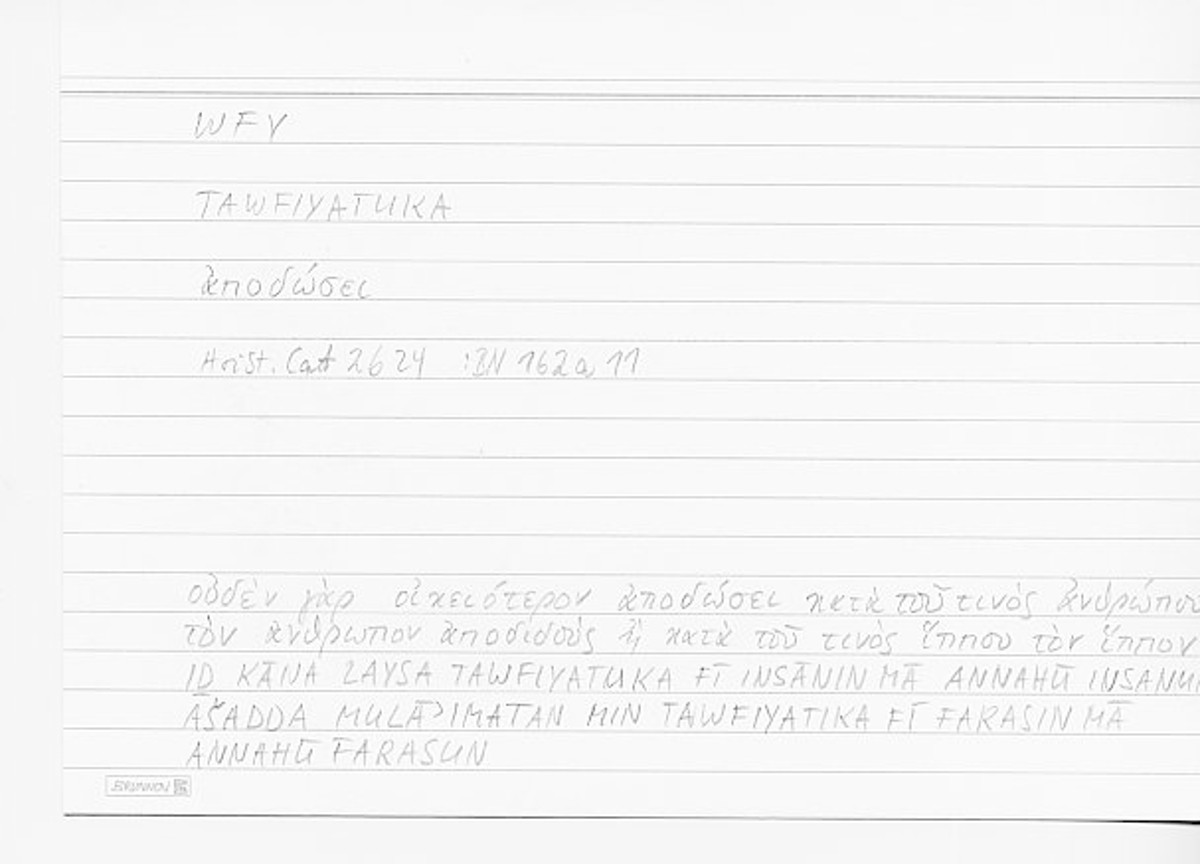 WFY
TAWFIYATUKA
ἀποδώσει
Arist. Cat 2b24 :BN 162a 11
οὐδὲν γὰρ οἰκειότερον ἀποδώσει κατὰ τοῦ τινὸς ἀνθρώπου
τὸν ἄνθρωπον ἀποδιδοὺς ἢ κατὰ τοῦ τινὸς ἵππου τὸν ἵππον
IḎ KĀNA LAYSA TAWFIYATUKA FĪ INSĀNIN MĀ ANNAHŪ INSANUN
AŠADDA MULĀʾIMATAN MIN TAWFIYATIKA FĪ FARASIN MĀ
ANNAHŪ FARASUN
BRUNNEN